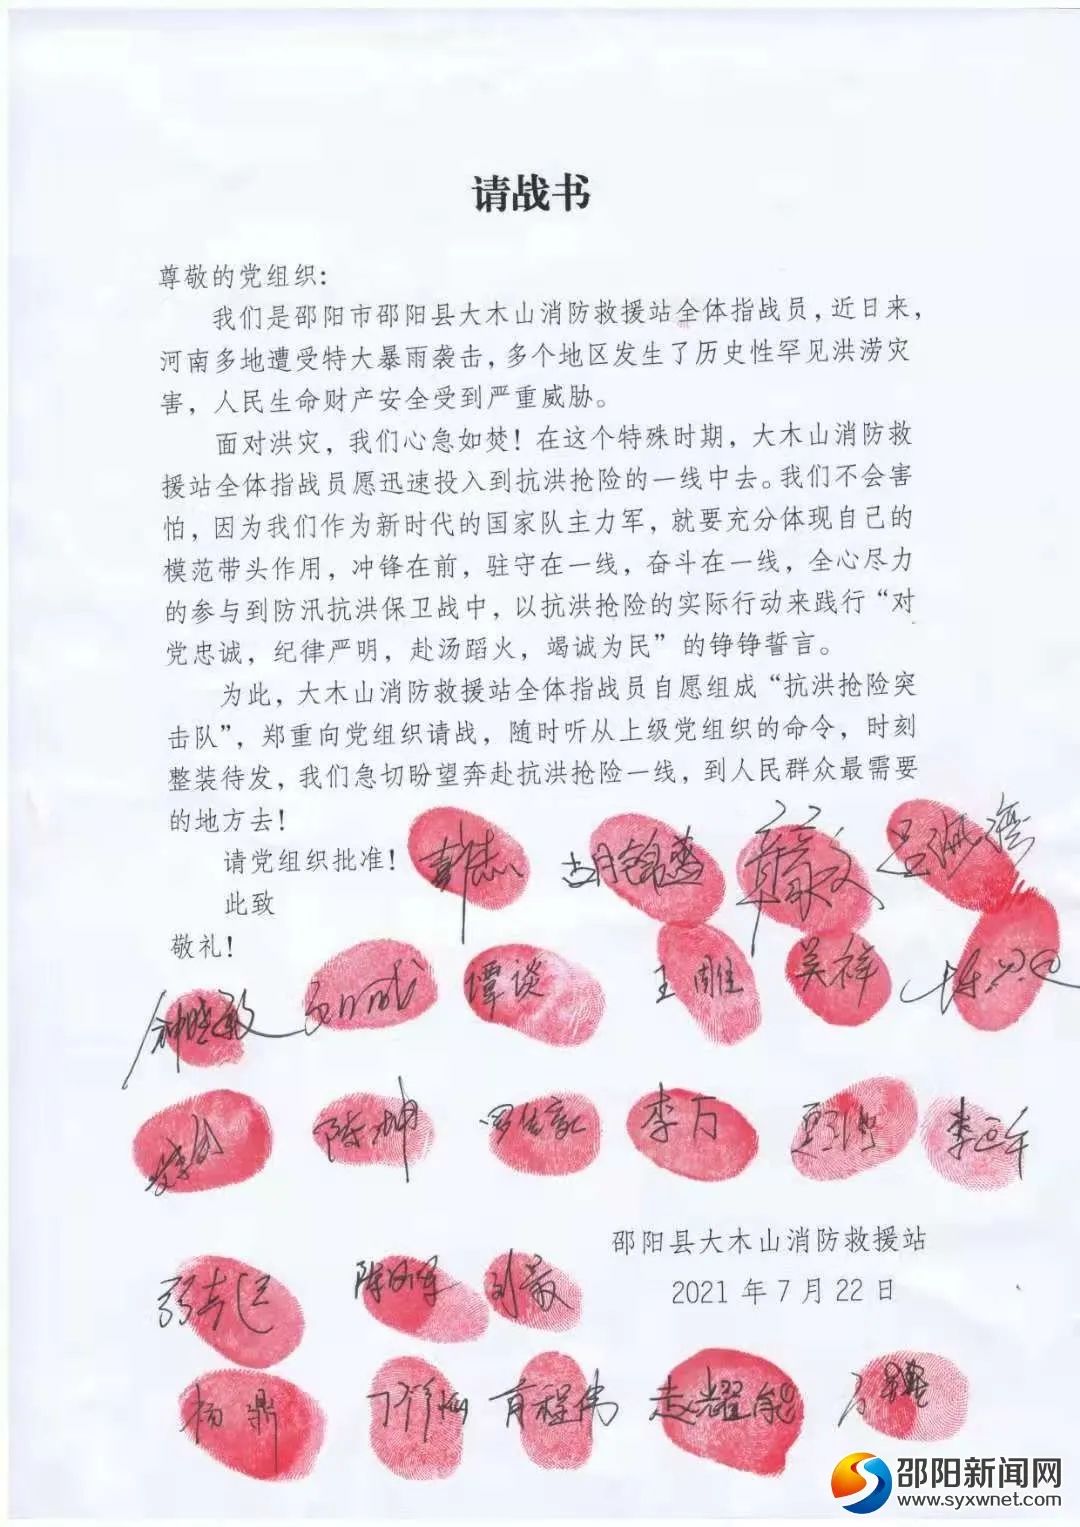 请战书
尊敬的党组织：
我们是邵阳市邵阳县大木山消防救援站全体指战员，近日来，
河南多地遭受特大暴雨袭击，多个地区发生了历史性罕见洪涝灾
害，人民生命财产安全受到严重威胁。
面对洪灾，我们心急如焚！在这个特殊时期，大木山消防救
援站全体指战员愿迅速投入到抗洪抢险的一线中去。我们不会害
怕，因为我们作为新时代的国家队主力军，就要充分体现自己的
模范带头作用，冲锋在前，驻守在一线，奋斗在一线，全心尽力
的参与到防汛抗洪保卫战中，以抗洪抢险的实际行动来践行“对
党忠诚，纪律严明，赴汤蹈火，竭诚为民”的铮铮誓言。
为此，大木山消防救援站全体指战员自愿组成“抗洪抢险突
击队”，郑重向党组织请战，随时听从上级党组织的命令，时刻
整装待发，我们急切盼望奔赴抗洪抢险一线，到人民群众最需要
的地方去！
请党组织批准！
此致
敬礼！
谭谈 王雕 吴祥
陈坤 李万
邵阳县大木山消防救援站
2021 年 7 月 22 日
杨鼎 肖程伟 赵耀能
邵阳新闻网
www.syxwnet.com